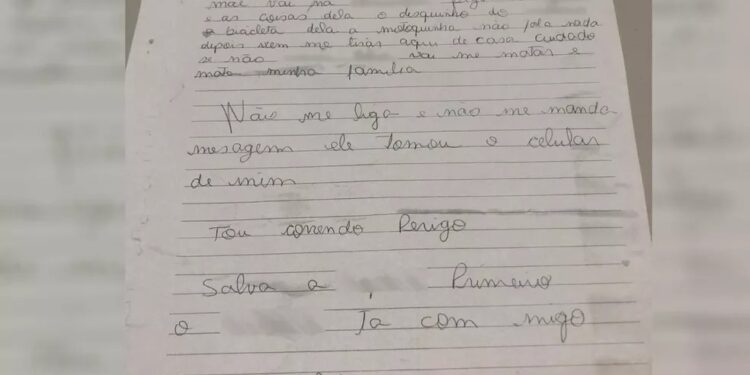 mãe vai na
e as coisas dela o desquinho do
bracleta dela a motoquinha não fala nada
depois vem me tiras aqui de casa cuidado
se não vai me matar e
mata minha família
Não me liga e nao me manda
mesagem ele Tomou o celular
de mim
Tou correndo Perigo
Salva a , Primeiro
o Ta com migo